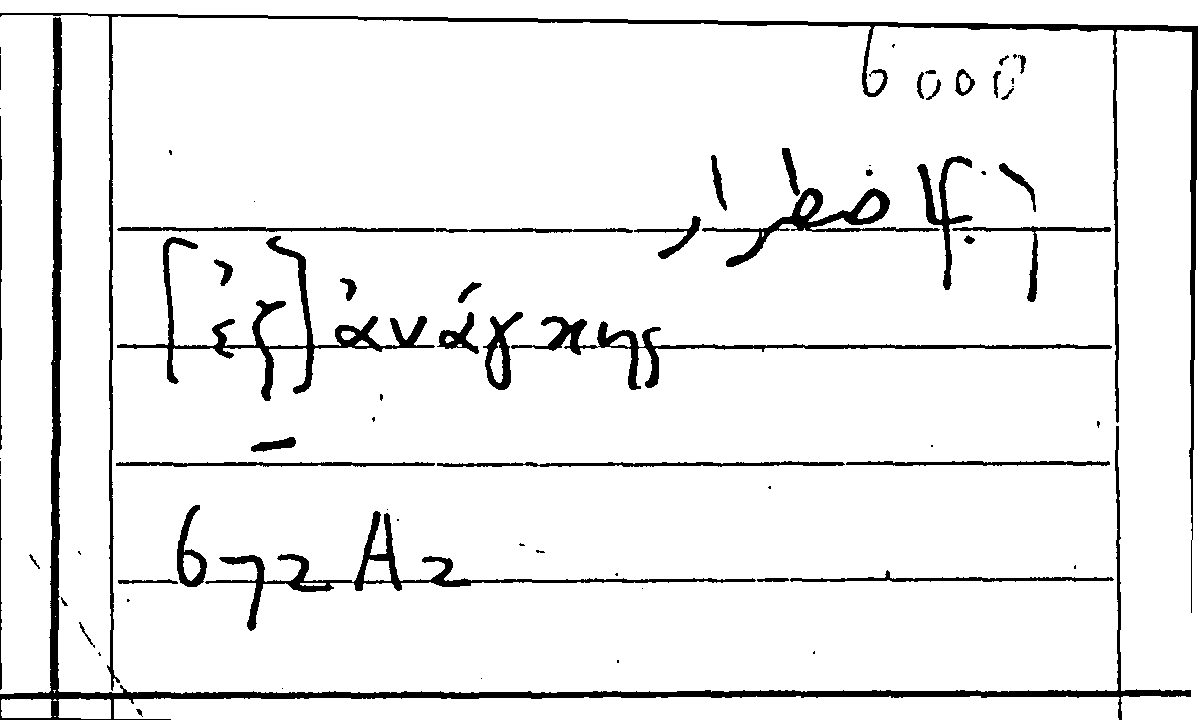 6000
اضطرار
[ἐξ] ἀνάγκης
–
672 A2